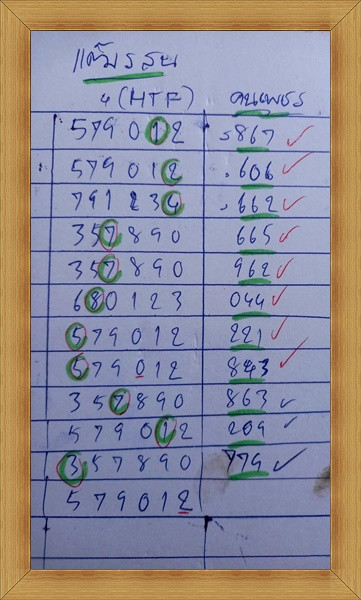 แต้มรวย
4 (HTF) คนเพชร
579012 5867
579012 .606
791234 ,662
357890 665
357890 962
680123 044
579012 221
579012 843
357890 863
579012 209
357890 779
579012